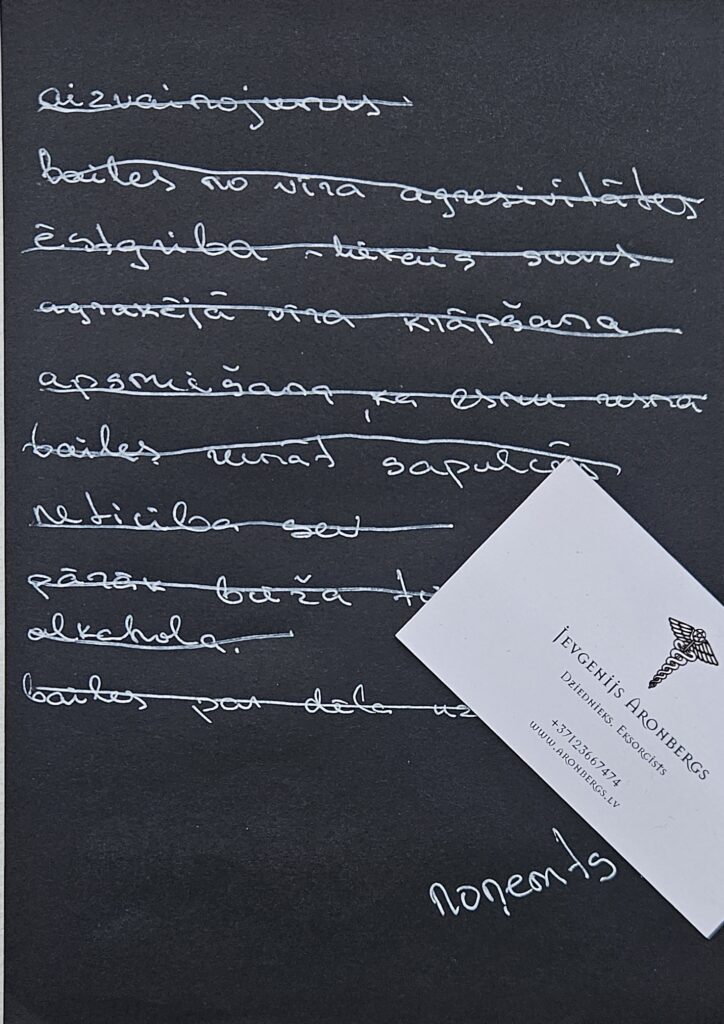 aizvainojums
bailes no vīra agresivitātes
ēstgriba - liekais svars
agrākējā vīra krāpšana
apsmiešana, ka esmu resna
bailes runāt sapulcēs
neticība sev
pārāk bieža
alkahola.
bailes par dēla
noņemts
Jevgenijs Aronbergs
Dziednieks, Eksorcists
+37123667474
www.aronbergs.lv